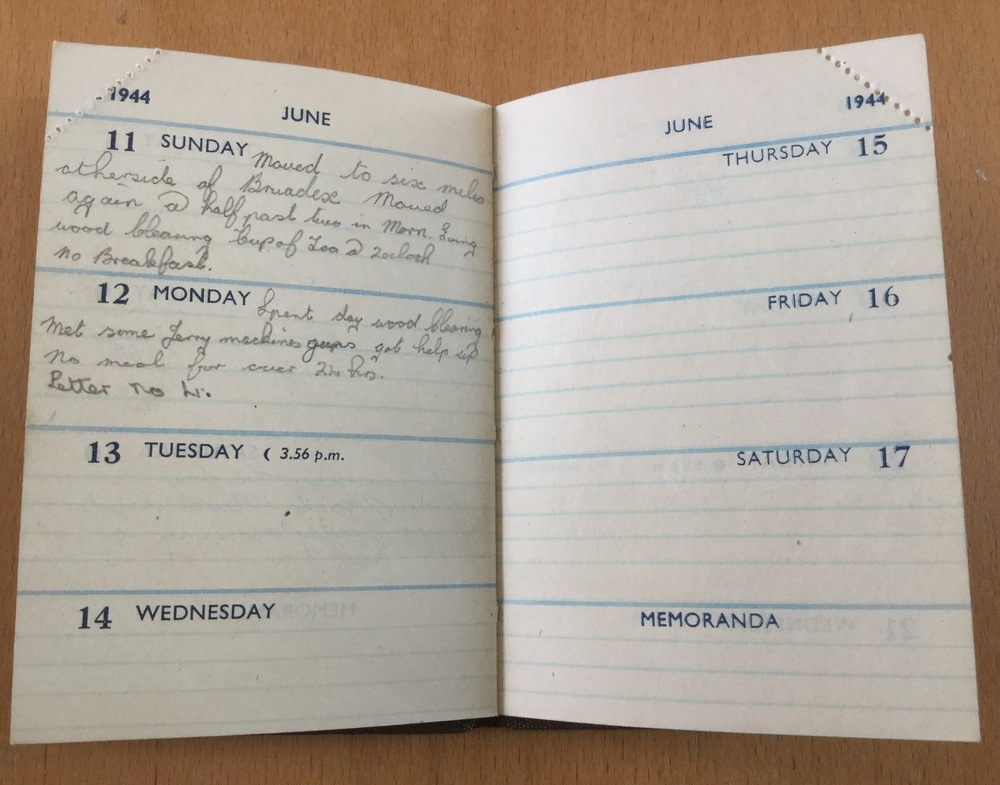 1944
JUNE
11 SUNDAY Moved to six miles
otherside of Bruadex Moved
again @ half past two in Morn. Going
wood blearing Cup of Tea @ 2oclock
no Breakfast.
12 MONDAY Spent day wood blearing
Met some Jerry machines guns got help up
No meal for over 24 hrs.
Letter no 4.
13 TUESDAY ☾ 3.56 p.m.
14 WEDNESDAY
1944
JUNE
THURSDAY 15
FRIDAY 16
SATURDAY 17
MEMORANDA